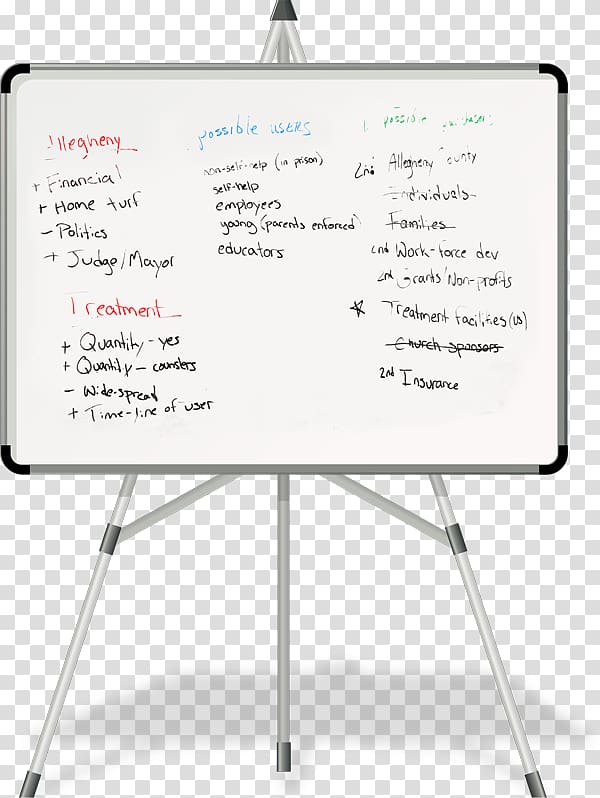 Allegheny
+ Financial
+ Home turf
- Politics
+ Judge/Mayor
Treatment
+ Quantity - yes
+ Quantity - counslers
- Wide-spread
+ Time-line of user
possible users
non-self-help (in prison)
self-help
employees
young (parents enforced)
educators
possible purchasers
2nd Allegheny County
Individuals
Families
2nd Work-force dev
2nd Grants/Non-profits
Treatment facilities (us)
Church sponsors
2nd Insurance